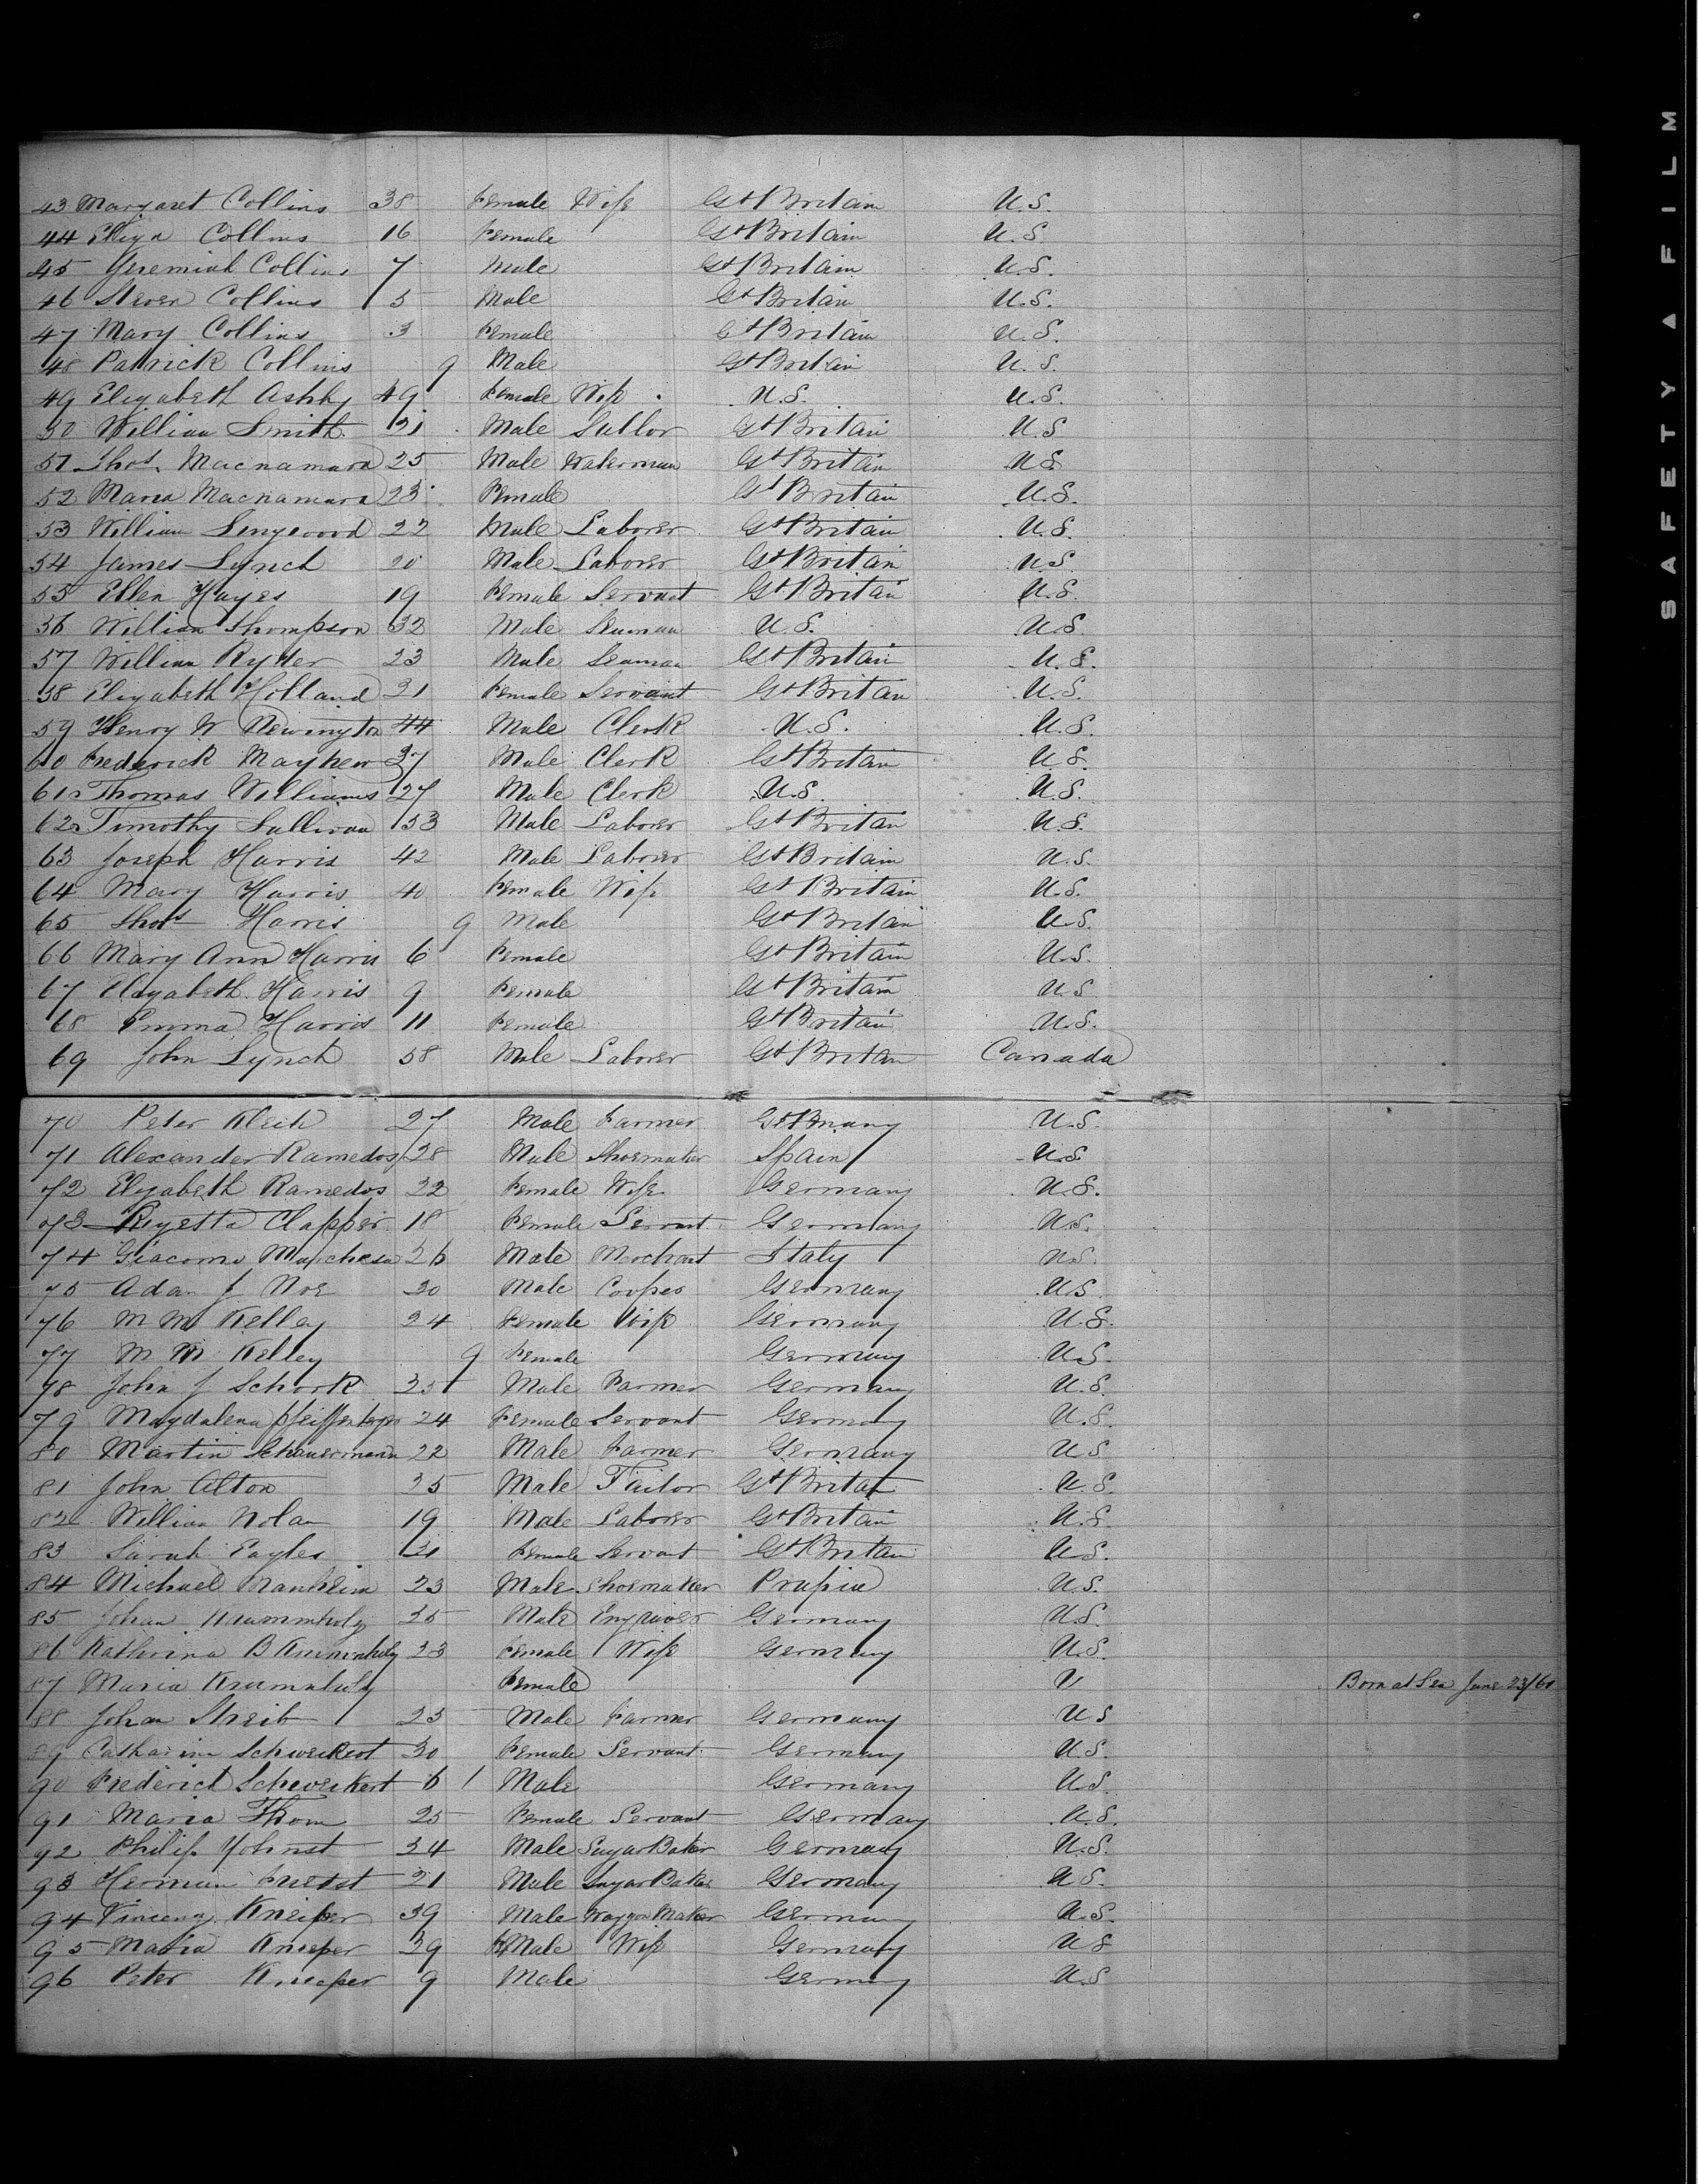 43 Margaret Collins 38 Female Wife Gt Britain U.S.
44 Eliza Collins 16 Female Gt Britain U.S
45 Jeremiah Collins 7 Male Gt Britain U.S.
46 Collins 5 Male Gt Britain U.S.
47 Mary Collins 3 Female Gt Britain U.S.
48 Patrick Collins 9 Male Gt Britain U.S.
49 Elizabeth Ashby 49 Female Wife U.S. U.S.
50 William Smith 21 Male Gt Britain U.S
51 Thos. Macnamara 25 Male Waterman Gt Britain U S
52 Maria Macnamara 23 Female Gt Britain U.S.
53 William 22 Male Laborer Gt Britain U.S.
54 James Lynch 20 Male Laborer Gt Britain U.S
55 Ellen Hayes 19 Female Servant Gt Britain U.S.
56 William Thompson 32 Male Seaman U.S. U.S
57 William Ryder 23 Male Seaman Gt Britain U.S.
58 Elizabeth Holland 21 Female Servant Gt Britain U.S.
59 Henry W Newington 44 Male Clerk U.S. U.S.
60 Frederick Mayhew 37 Male Clerk Gt Britain U S.
61 Thomas Williams 27 Male Clerk U.S. U.S.
62 Timothy Sullivan 53 Male Laborer Gt Britain U.S.
63 Joseph Harris 42 Male Laborer Gt Britain U.S.
64 Mary Harris 40 Female Wife Gt Britain U.S.
65 Thos Harris 9 Male Gt Britain U.S.
66 Mary Ann Harris 6 Female Gt Britain U.S.
67 Elizabeth Harris 9 Female Gt Britain U.S
68 Emma Harris 11 Female Gt Britain U.S.
69 John Lynch 58 Male Laborer Gt Britain Canada
70 Peter 27 Male Farmer U.S.
71 Alexander Ramedos 28 Male Shoemaker Spain U.S
72 Elizabeth Ramedos 22 Female Wife Germany U.S.
73 Clapper 18 Female Servant Germany U.S.
74 Giacomo Marchesa 26 Male Merchant Italy U.S.
75 Adam J Noe 30 Male Cooper Germany U.S
76 M M Kelley 24 Female Wife Germany U.S.
77 M M Kelley 9 Female Germany U.S.
78 John J Schork 25 Male Farmer Germany U.S.
79 Magdalena 24 Female Servant Germany U.S.
80 Martin Scheuermann 22 Male Farmer Germany U.S
81 John Alton 25 Male Tailor Gt Britain U.S.
82 William Nolan 19 Male Laborer Gt Britain U.S
83 Sarah Eagles 21 Female Servant Gt Britain U.S.
84 Michael Manheim 23 Male Shoemaker Prussia U.S.
85 Johan Krummholz 25 Male Engraver Germany U.S
86 Katherina B Krummholz 23 Female Wife Germany U.S.
87 Maria Krumholz Female U Born at Sea June 23/60
88 Johan Streib 23 Male Farmer Germany U S
89 Catharine Schweikert 30 Female Servant Germany U.S.
90 Frederick Schweikert 6 Male Germany U.S
91 Maria Thom 25 Female Servant Germany U.S.
92 Philip Yohnst 34 Male Sugar Baker Germany U.S.
93 Herman 21 Male Sugar Baker Germany U S.
94 Vincenz Kneiper 39 Male Waggon Maker Germany U.S.
95 Maria Knieper 39 Wife Germany U S
96 Peter Knieper 9 Male Germany U.S
SAFETY FILM